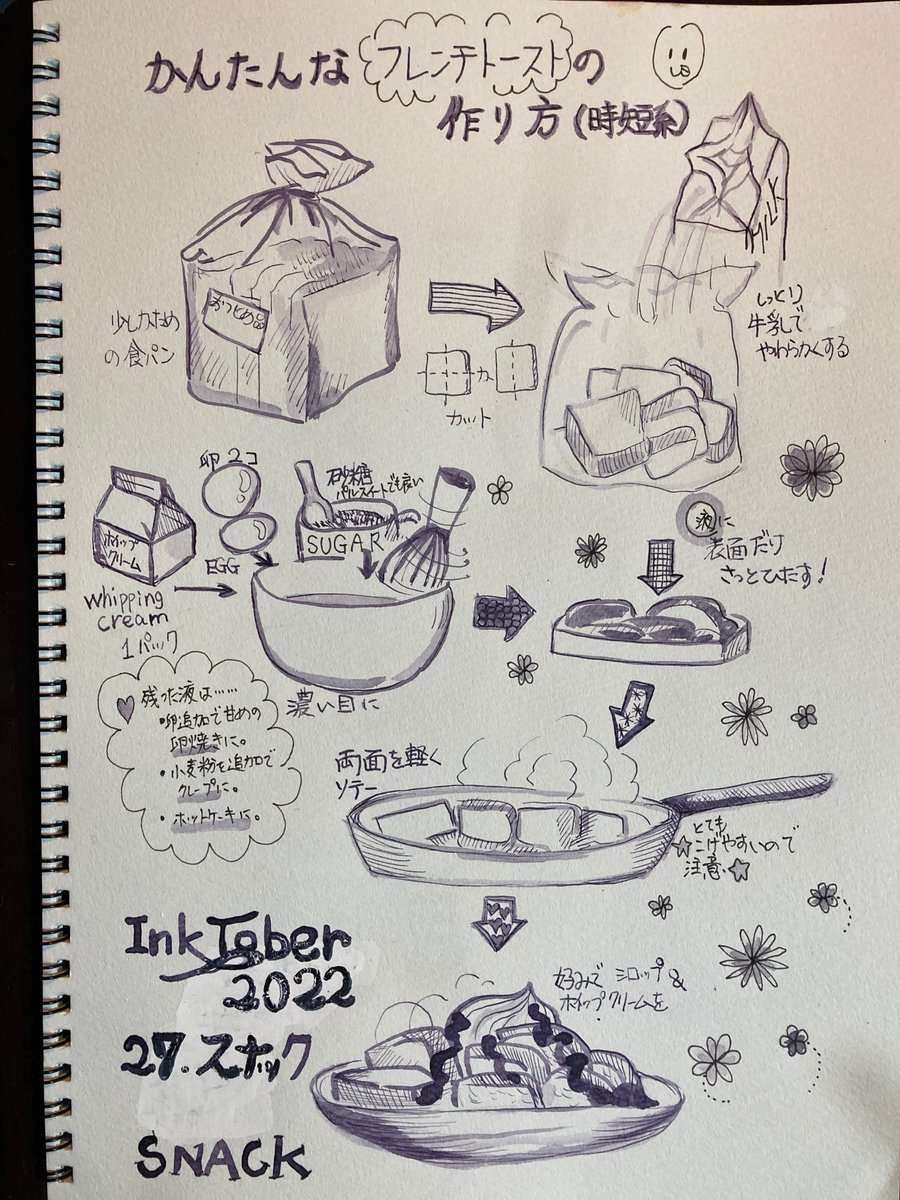 かんたんなフレンチトーストの
作り方(時短系)
MILK
おつとめ品
少しかため
の食パン
か
カット
しっとり
牛乳で
やわらかくする
卵2コ
砂糖
パルスイートでも良い
ホイップ
クリーム
EGG
SUGAR
whipping
cream
1パック
濃い目に
液に
表面だけ
さっとひたす!
残った液は……
・卵追加で甘めの
卵焼きに。
・小麦粉を追加で
クレープに。
・ホットケーキに。
両面を軽く
ソテー
とても
こげやすいので
注意
InkTober
2022
27.スナック
SNACK
好みで シロップ&
ホイップクリームを